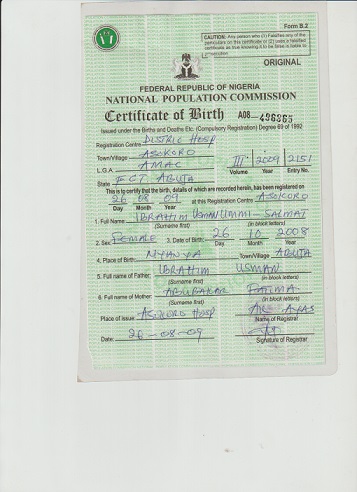 Form B.2
CAUTION: Any person who (1) Falsifies any of the
particulars on this certificate or (2) uses a falsified
certificate as true knowing it to be false is liable to
ORIGINAL
FEDERAL REPUBLIC OF NIGERIA
NATIONAL POPULATION COMMISSION
Certificate of Birth A08-436365
Issued under the Births and Deaths Etc. (Compulsory Registration) Degree 69 of 1992
Registration Centre DISTRIC HOSP
Town/Village ASOKORO
L.G.A. AMAC III 2009 2151
Volume Year Entry No.
State FCT ABUJA
This is to certify that the birth, details of which are recorded herein, has been registered on
26 08 09 at this Registration Centre ASOKORO
Day Month Year
1. Full Name: IBRAHIM USMAN UMMI-SALMAT
(Surname first) (in block letters)
2. Sex: FEMALE 3. Date of Birth: 26 10 2008
Day Month Year
4. Place of Birth: NYANYA Town/Village ABUJA
5. Full name of Father: IBRAHIM USMAN
(Surname first) (in block letters)
6. Full name of Mother: ABUBAKAR FATIMA
(Surname first) (in block letters)
Place of issue ASOKORO HOSP
Name of Registrar
Date: 26-08-09
Signature of Registrar